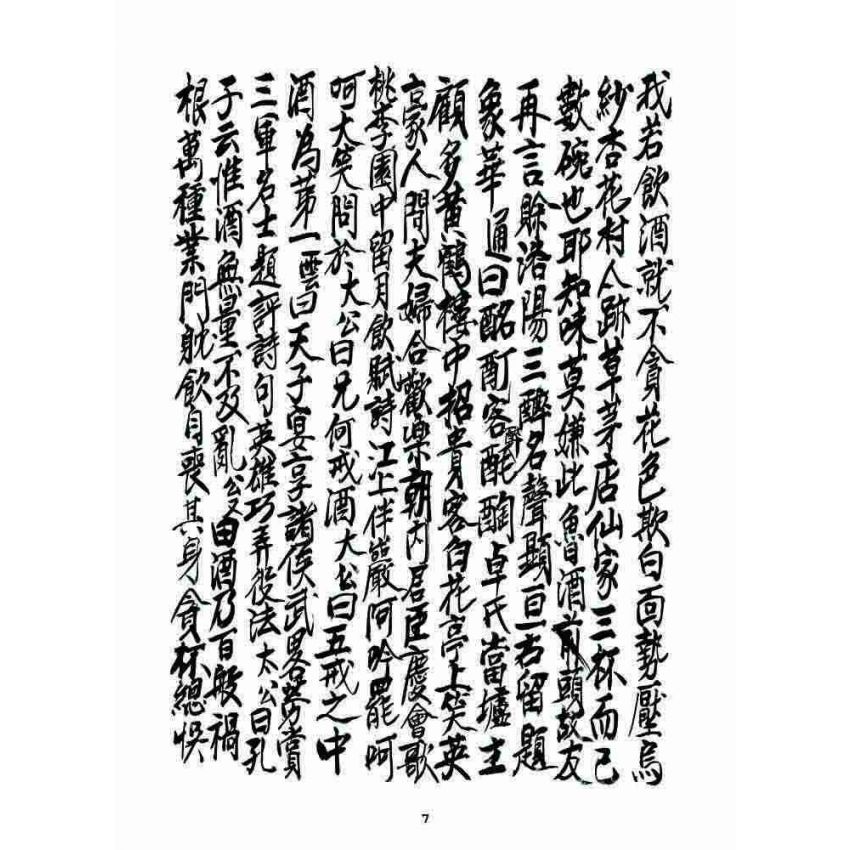 我若飲酒就不貪花色欺白面勢壓烏
紗杏花村人跡草茅店仙家三杯而已
數碗也耶知味莫嫌此魯酒前頭故友
再言賒洛陽三醉名聲顯百古留題
象華通曰酩酊客醉酕醄卓氏當壚主
顧多黃鶴樓中招貴客白花亭上笑英
豪家人問夫婦合歡樂朝內君臣慶會歌
桃李園中留月飲賦詩江上伴嚴阿吟罷呵
呵大笑問於大公曰兄何戒酒大公曰五戒之中
酒為第一雲曰天子宴享諸侯武畧勞賞
三軍名士題評詩句英雄巧弄役法太公曰孔
子云惟酒無量不及亂公又由酒乃百般禍
根萬種業門躭飲自喪其身貪杯總悞
7